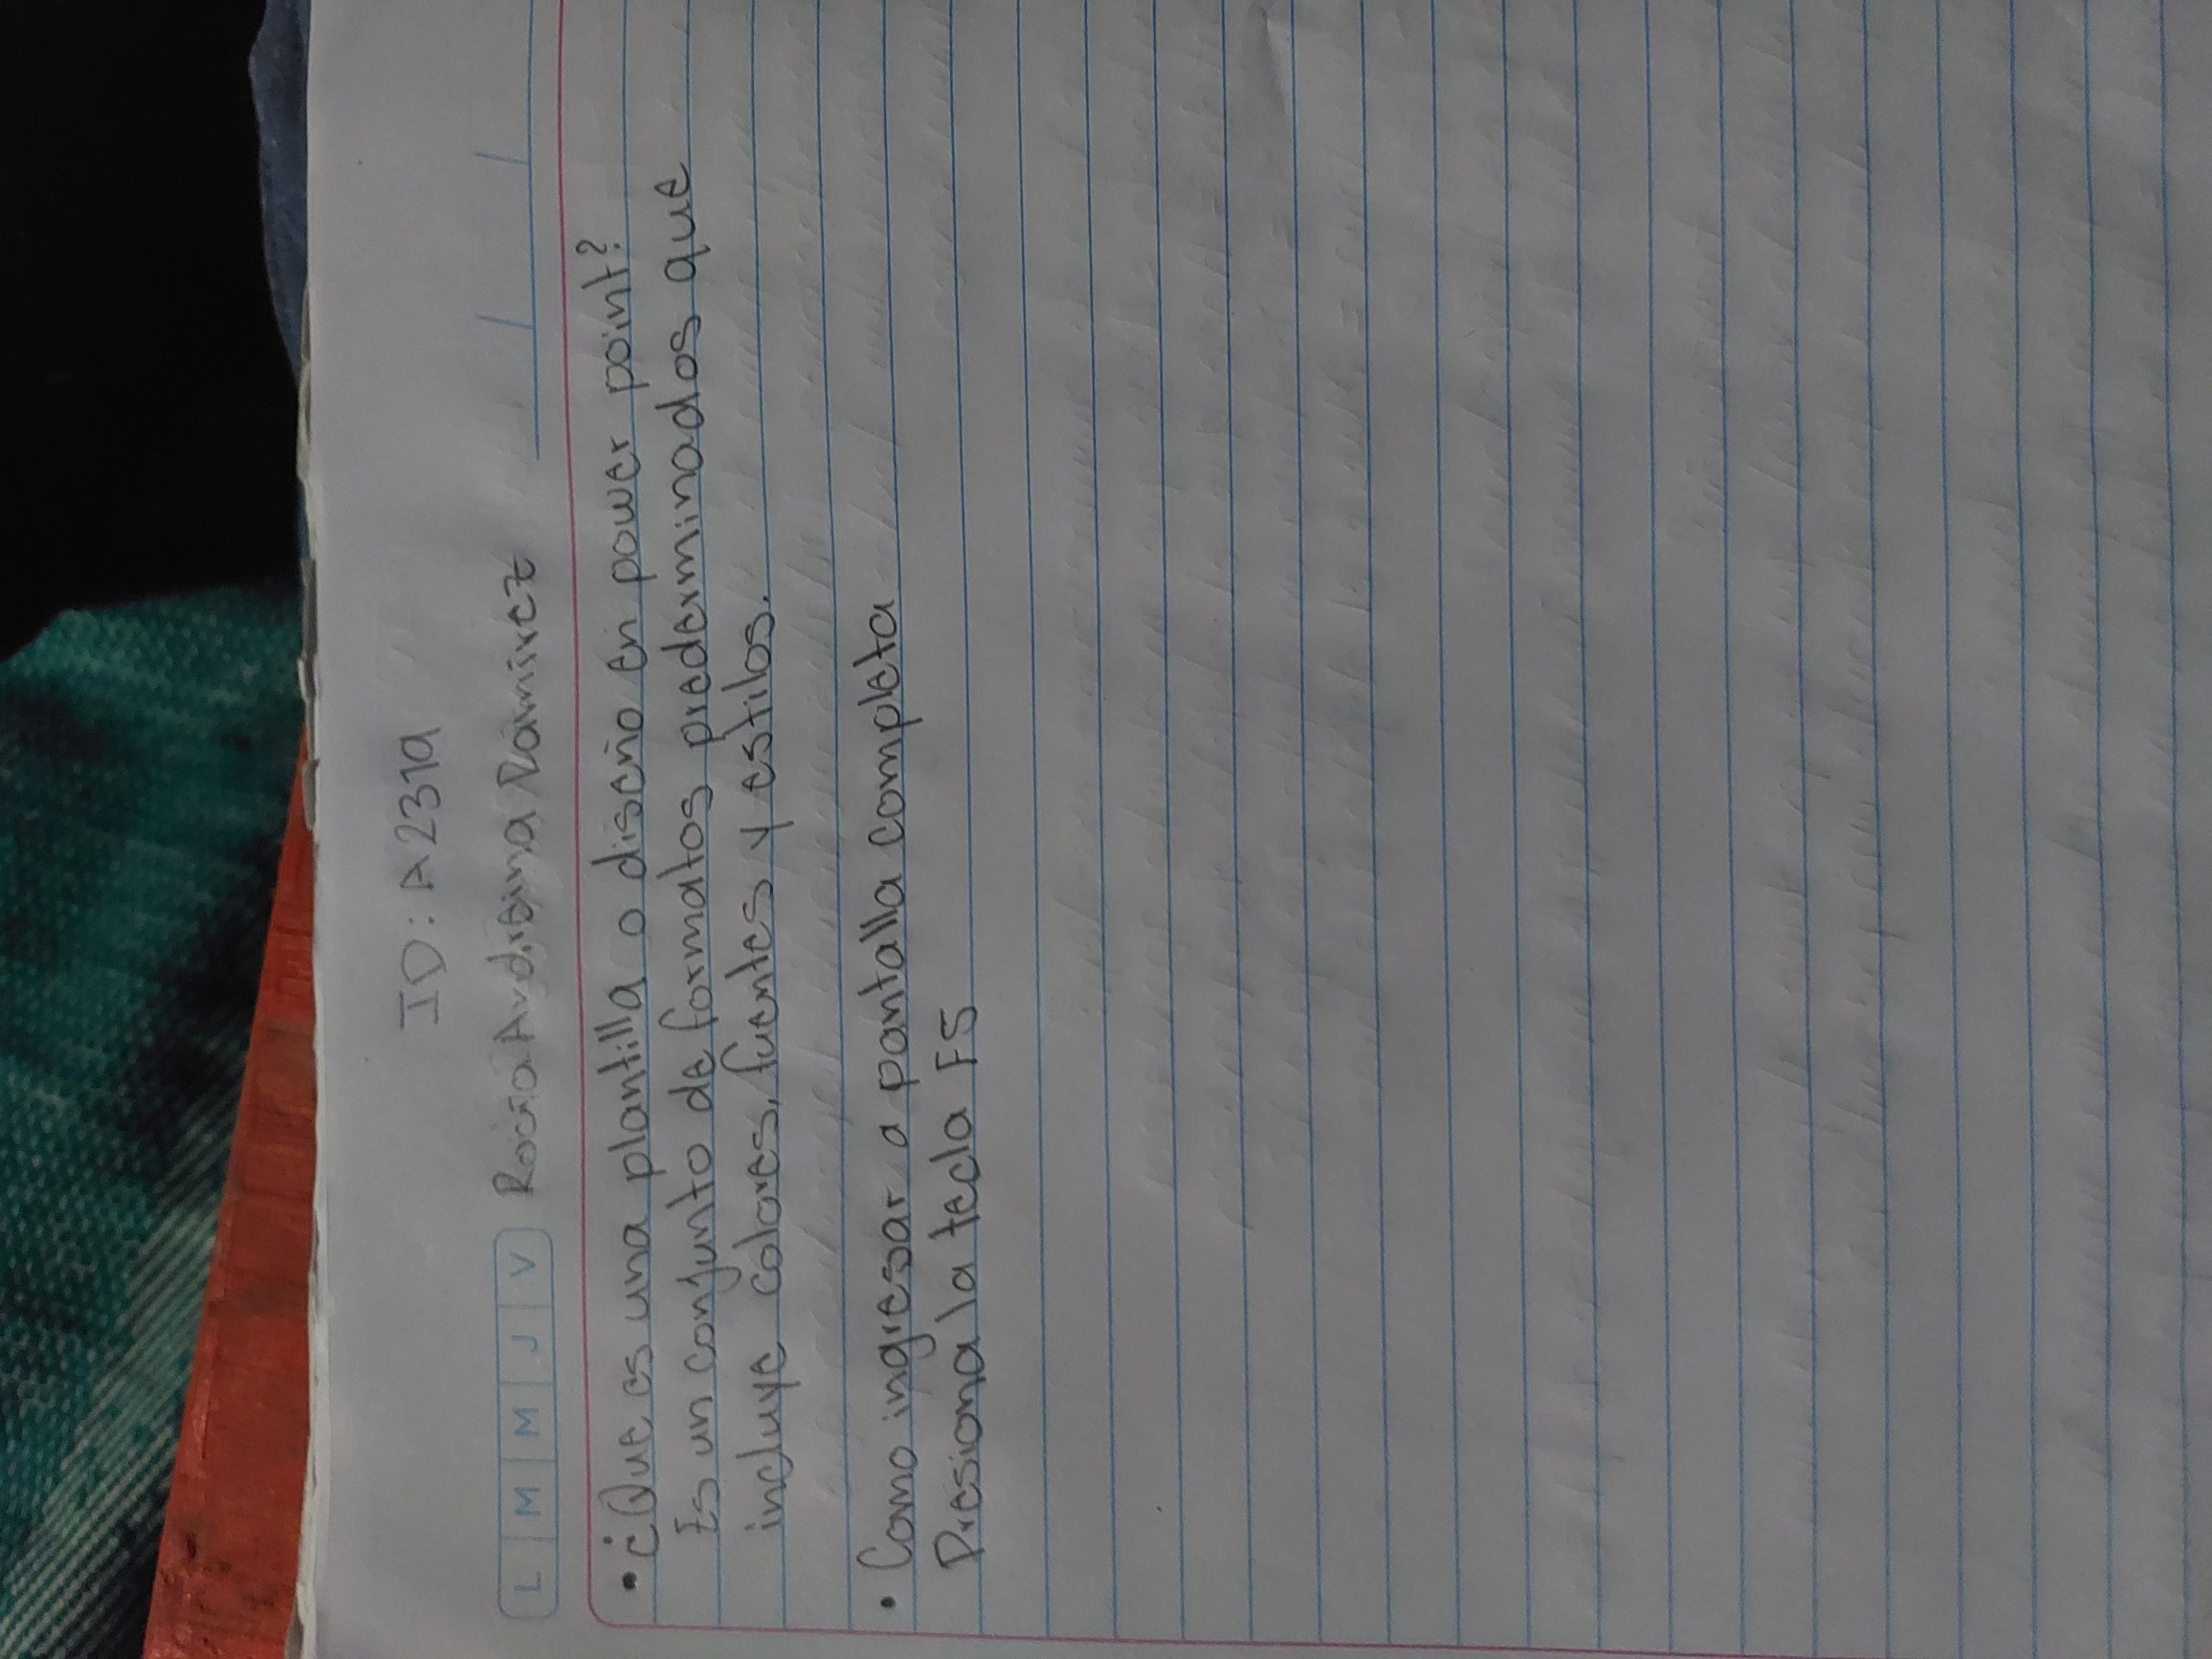 ID: A2319
L M M J V Rocio Andreina Ramirez
• ¿Que es una plantilla o diseño en power point?
Es un conjunto de formatos predeminados que
incluye colores, fuentes y estilos.
• Como ingresar a pantalla completa
Presiona la tecla F5